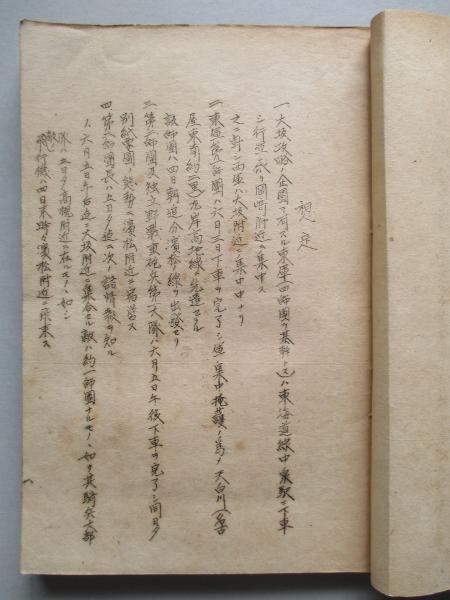 想定
一 大坂攻略ノ企図ヲ有スル東軍(四師団ヲ基幹トス)ハ東海道線中泉駅ニ下車
シ行進ニ依リ岡崎附近ニ集中ス
之ニ対シ西軍ハ大坂附近ニ集中中ナリ
二 東軍第 師団ハ六月三日下車ヲ完了シ軍ノ集中掩護ノ為メ天白川(名古
屋東南約二里)左岸高地線ニ先遣セラル
該師団ハ四日朝進分濱松ノ線ヲ出発セリ
三 第二師団及独立野戦重砲兵第一大隊ハ六月五日午後下車ヲ完了シ同日夕
別紙要図ノ態勢ニ濱松附近ニ宿営ス
四 第二師団長ハ五日夕迄ニ次ノ諸情報ヲ知ル
1、六月五日午后迄ニ大坂附近ニ集合セル敵ハ約一師団ナルモノヽ如ク其騎兵大部
隊ハ五日夕高槻附近ニ在ルモノヽ如シ
敵飛行機ハ四日来時々濱松附近ニ飛来ス